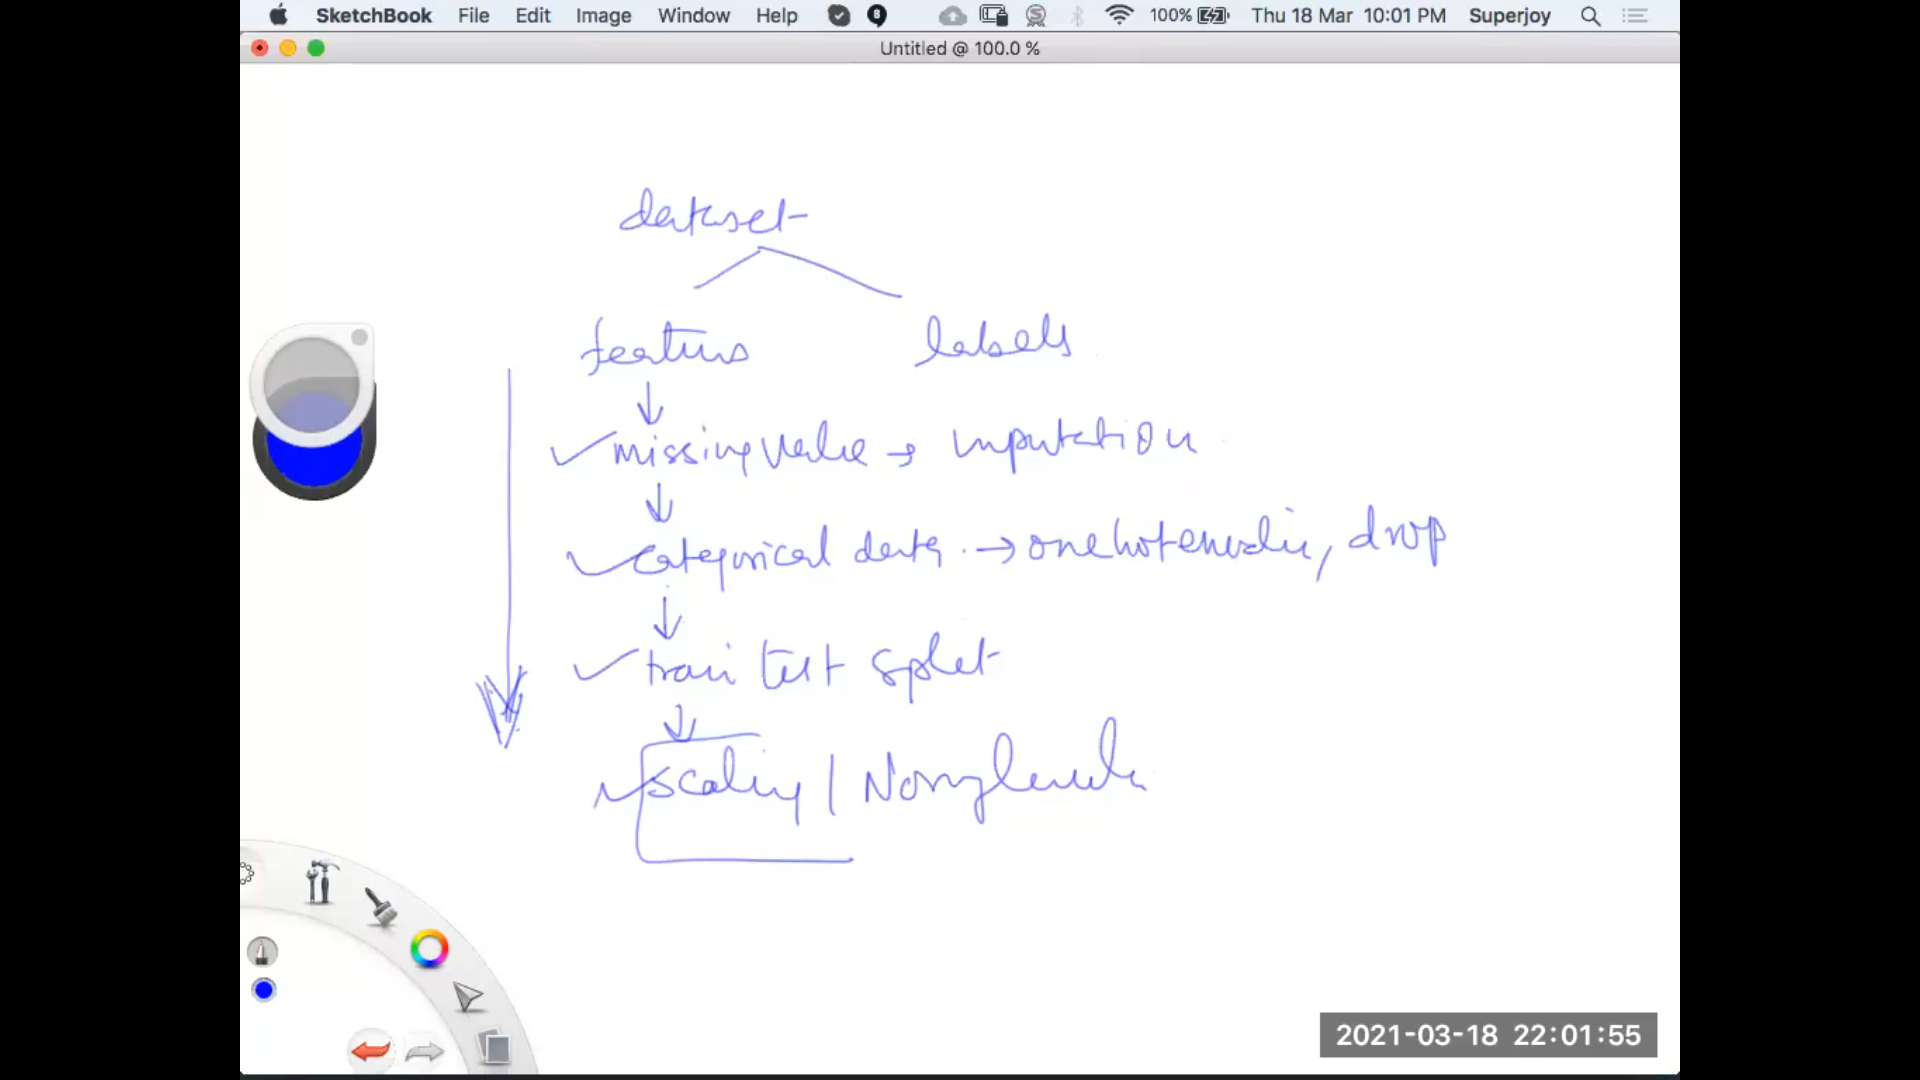 SketchBook File Edit Image Window Help 100% Thu 18 Mar 10:01 PM Superjoy
Untitled @ 100.0 %
dataset
features labels
missing value → imputation
categorical data → onehotencodin, drop
train test split
scaling |
2021-03-18 22:01:55